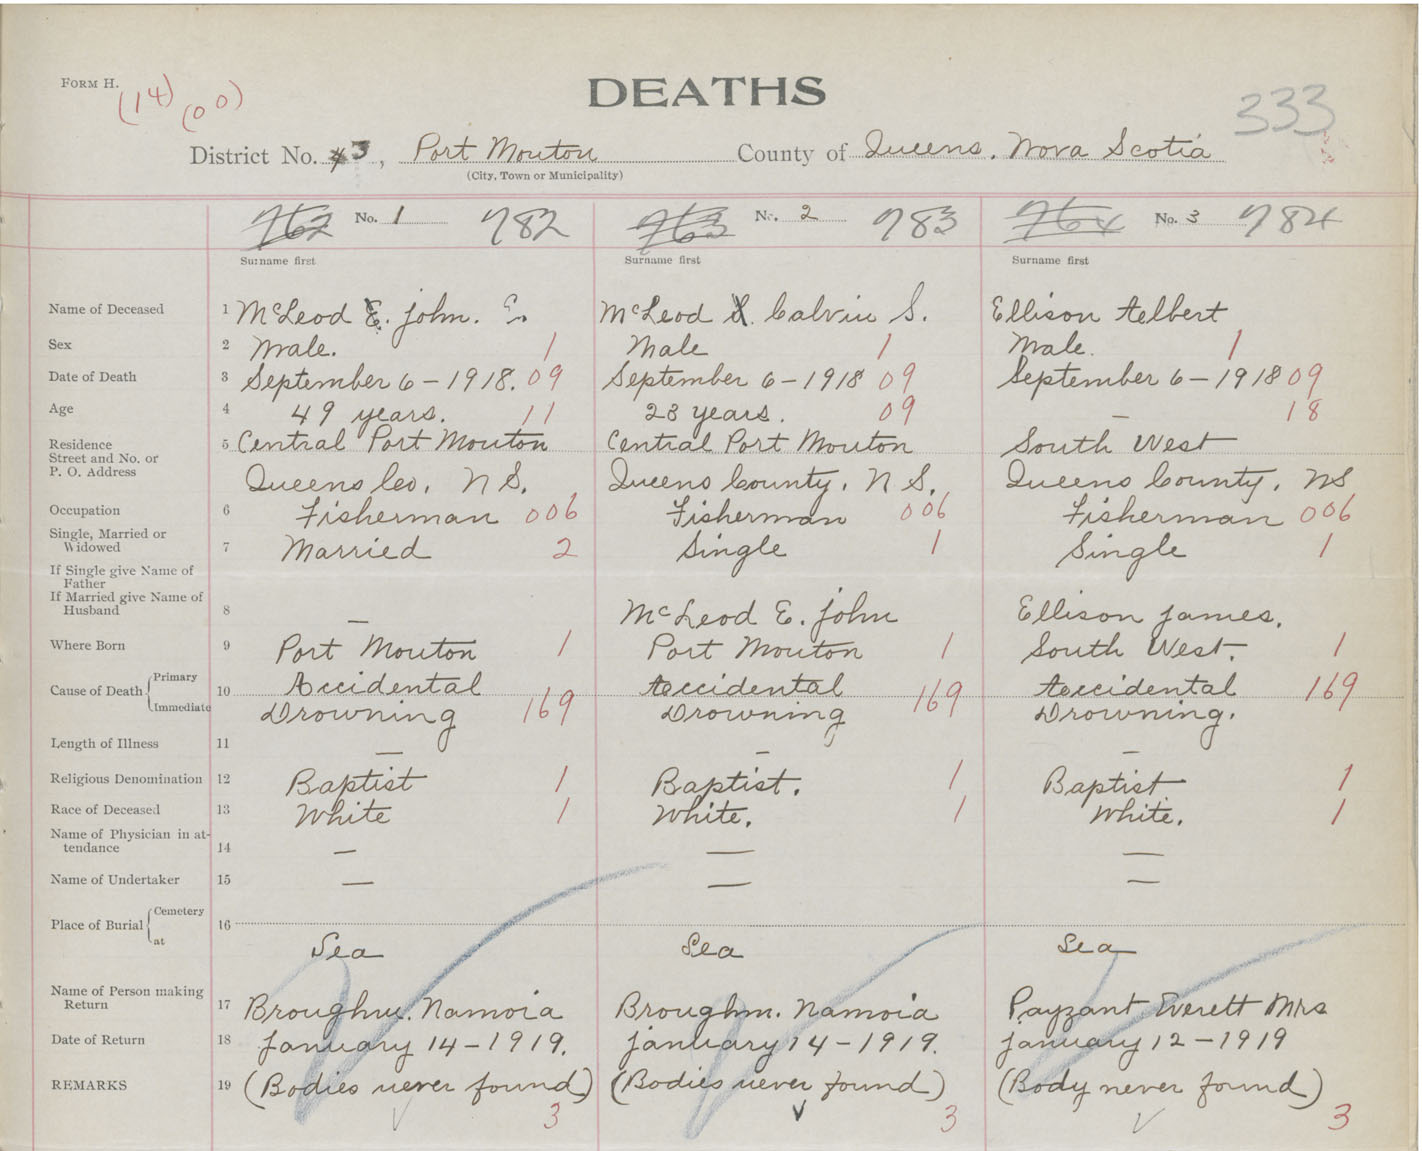 FORM H.
(14) (00)
DEATHS
333
District No. 3, Port Mouton County of Queens. Nova Scotia
(City, Town or Municipality)
762 No. 1 782 763 No. 2 783 764 No. 3 784
Surname first Surname first Surname first
Name of Deceased 1 McLeod E. John. E. McLeod S. Calvin S. Ellison Aelbert
Sex 2 Male. 1 Male 1 Male. 1
Date of Death 3 September 6-1918. 09 September 6-1918 09 September 6-1918 09
Age 4 49 years. 11 23 years. 09 — 18
Residence 5 Central Port Mouton Central Port Mouton South West
Street and No. or
P. O. Address Queens Co. N S. Queens County. N S. Queens County. NS
Occupation 6 Fisherman 006 Fisherman 006 Fisherman 006
Single, Married or
Widowed 7 Married 2 Single 1 Single 1
If Single give Name of
Father
If Married give Name of
Husband 8 — McLeod E. John Ellison James.
Where Born 9 Port Mouton 1 Port Mouton 1 South West. 1
Cause of Death Primary 10 Accidental 169 Accidental 169 Accidental 169
Immediate Drowning Drowning Drowning.
Length of Illness 11 — — —
Religious Denomination 12 Baptist 1 Baptist. 1 Baptist 1
Race of Deceased 13 White 1 White. 1 White. 1
Name of Physician in at-
tendance 14 — — —
Name of Undertaker 15 — — —
Place of Burial Cemetery 16
at Sea Sea Sea
Name of Person making
Return 17 Broughm. Namoia Broughm. Namoia Payzant Everett Mrs
Date of Return 18 January 14-1919. January 14-1919. January 12-1919
REMARKS 19 (Bodies never found) (Bodies never found) (Body never found)
3 3 3